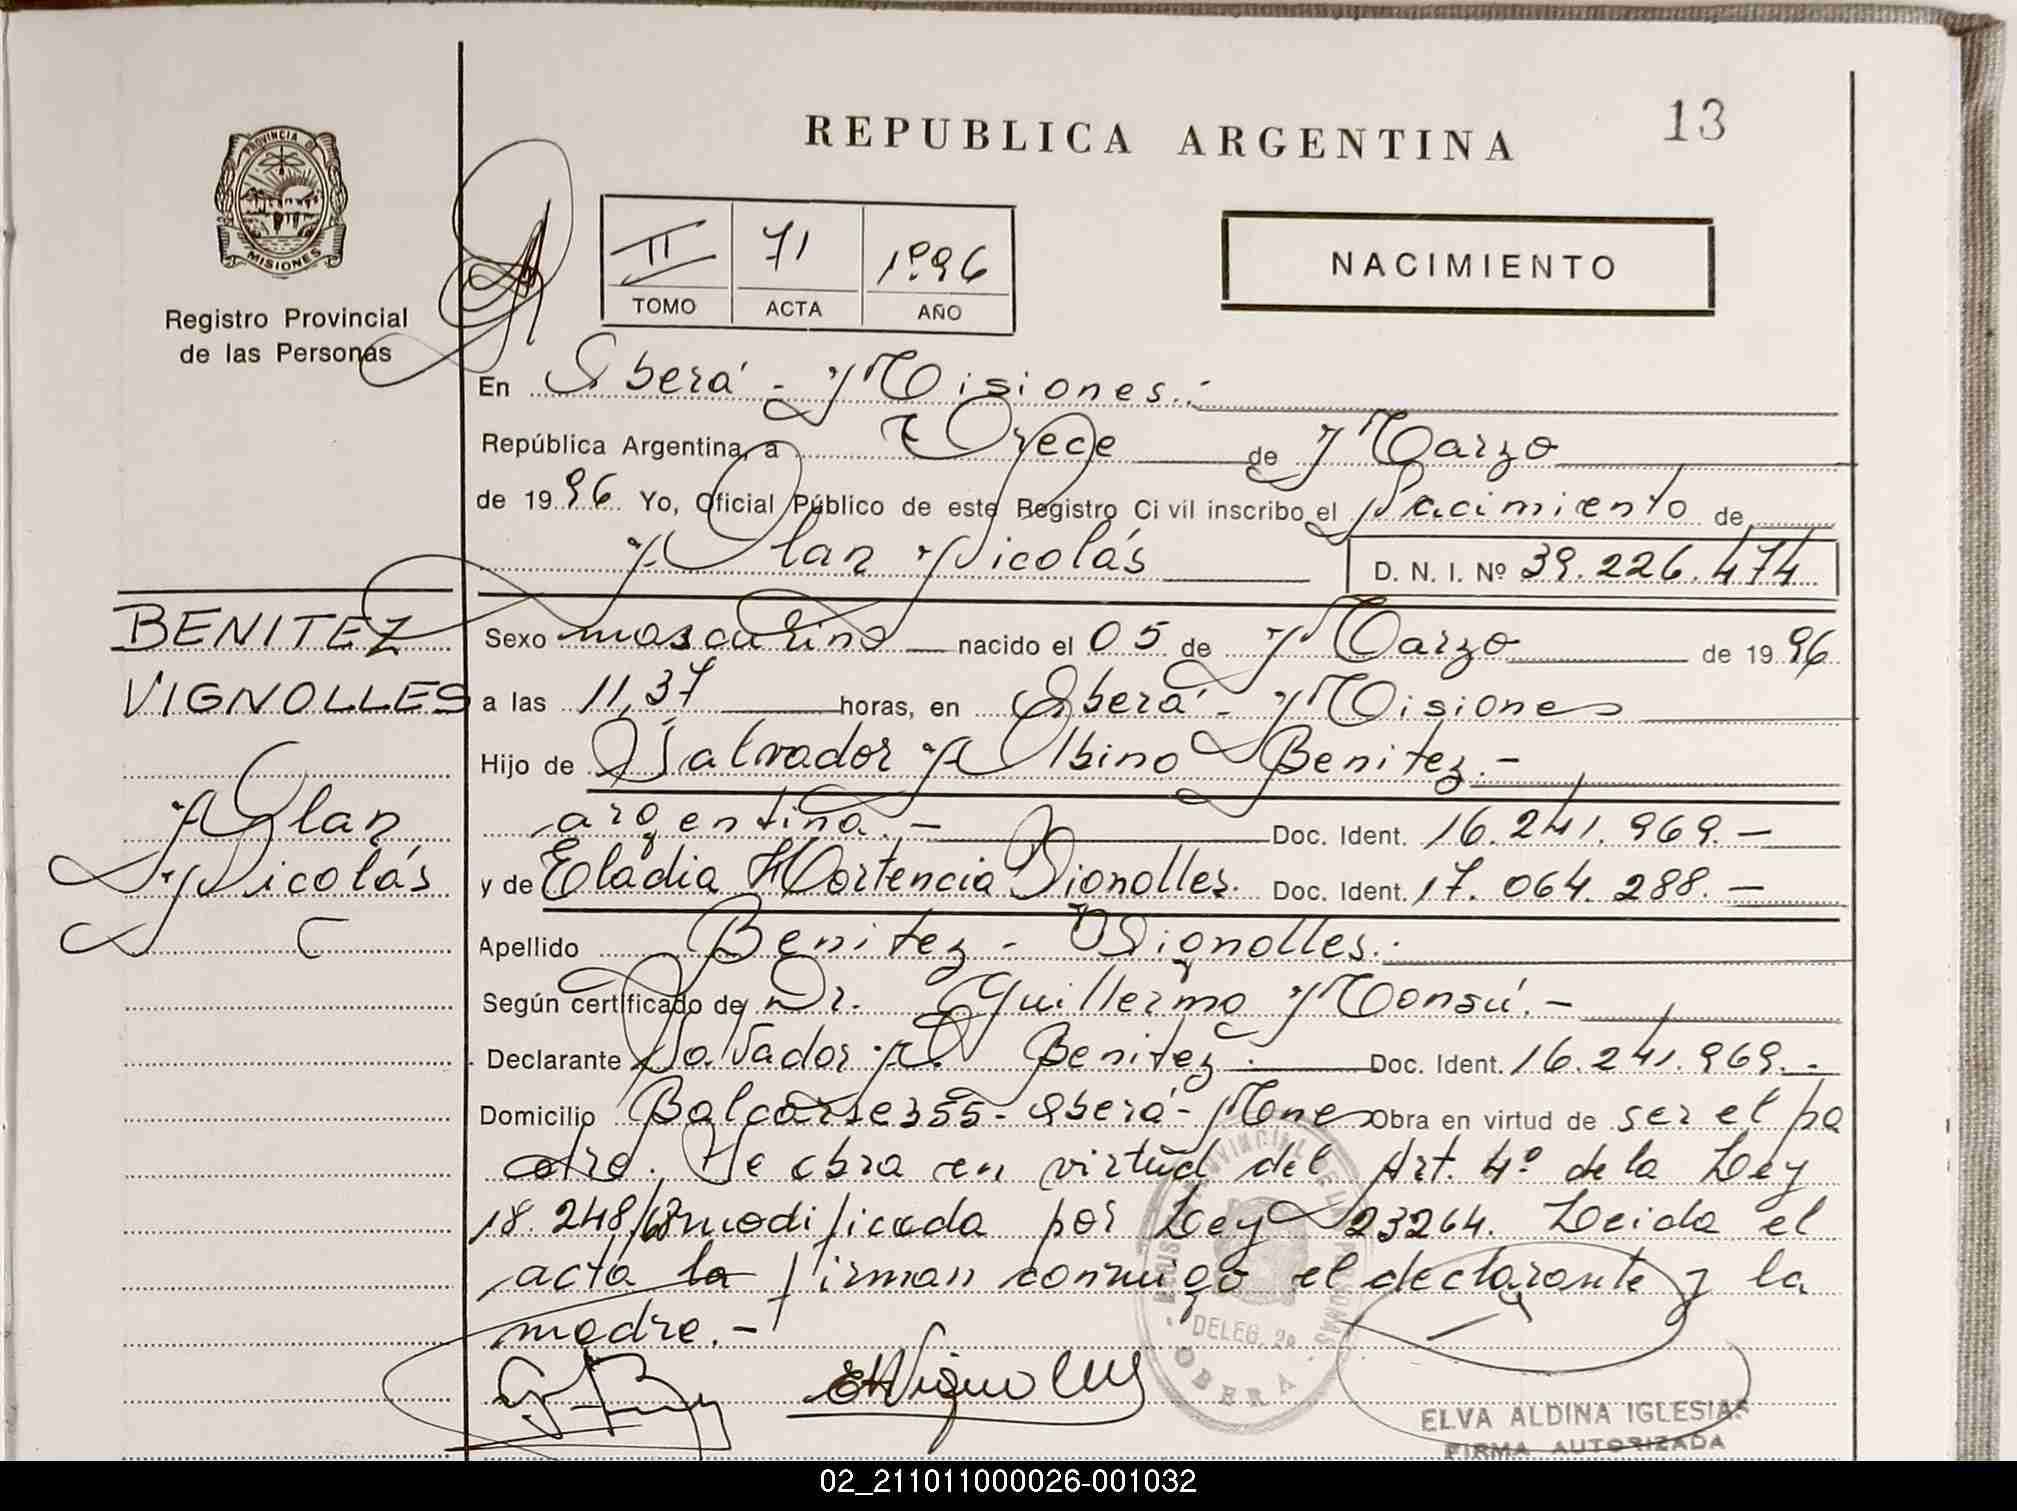 13
REPUBLICA ARGENTINA
PROVINCIA DE
MISIONES
Registro Provincial
de las Personas
II 71 1996
TOMO ACTA AÑO
NACIMIENTO
En Oberá - Misiones.-
República Argentina, a Trece de Marzo
de 1996 Yo, Oficial Público de este Registro Civil inscribo el Nacimiento de
Alan Nicolás D. N. I. Nº 39.226.474
BENITEZ
VIGNOLLES
Alan
Nicolás
Sexo masculino nacido el 05 de Marzo de 1996
a las 11,37 horas, en Oberá - Misiones
Hijo de Salvador Albino Benitez.-
argentina.- Doc. Ident. 16.241.969.-
y de Eladia Hortencia Vignolles. Doc. Ident. 17.064.288.-
Apellido Benitez - Vignolles.-
Según certificado de Dr. Guillermo Monsú.-
Declarante Salvador A. Benitez.- Doc. Ident. 16.241.969.-
Domicilio Balcarse 355 - Oberá - Mnes Obra en virtud de ser el pa
dre. Se obra en virtud del Art. 4º de la Ley
18.248/68 modificada por Ley 23264. Leida el
acta la firman conmigo el declarante y la
madre.-
EHVignolles
DELEG. 2a
OBERA
ELVA ALDINA IGLESIAS
FIRMA AUTORIZADA
02_211011000026-001032